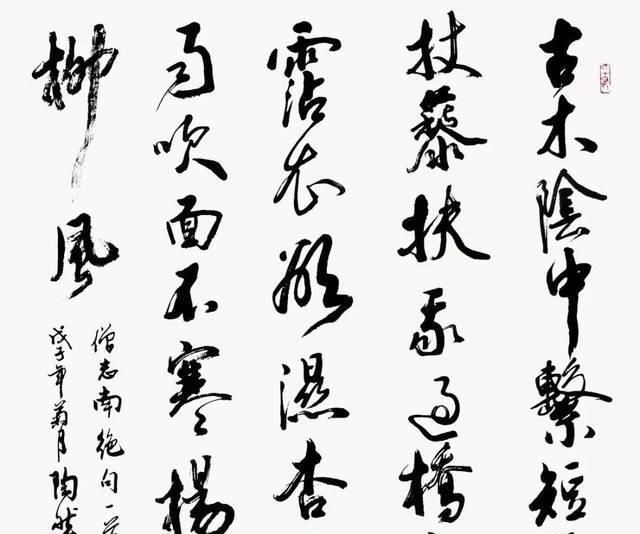 古木陰中繫短
杖藜扶我過橋
霑衣欲濕杏
雨吹面不寒楊
柳風
僧志南絕句一
戊子年菊月陶